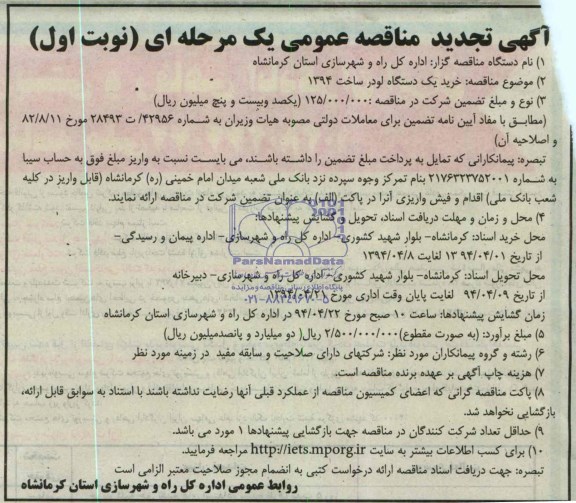 آگهی تجدید مناقصه عمومی یک مرحله ای (نوبت اول)
۱) نام دستگاه مناقصه گزار: اداره کل راه و شهرسازی استان کرمانشاه
۲) موضوع مناقصه: خرید یک دستگاه لودر ساخت ۱۳۹۴
۳) نوع و مبلغ تضمین شرکت در مناقصه :۱۲۵/۰۰۰/۰۰۰ (یکصد وبیست و پنج میلیون ریال)
(مطابق با مفاد آیین نامه تضمین برای معاملات دولتی مصوبه هیات وزیران به شماره ۴۲۹۵۶/ ت ۲۸۴۹۳ مورخ ۸۲/۸/۱۱
و اصلاحیه آن)
تبصره: پیمانکارانی که تمایل به پرداخت مبلغ تضمین را داشته باشند، می بایست نسبت به واریز مبلغ فوق به حساب سیبا
به شماره ۲۱۷۶۳۲۳۷۵۲۰۰۱ بنام تمرکز وجوه سپرده نزد بانک ملی شعبه میدان امام خمینی (ره) کرمانشاه (قابل واریز در کلیه
شعب بانک ملی) اقدام و فیش واریزی آنرا در پاکت (الف) به عنوان تضمین شرکت در مناقصه ارائه نمایند.
۴) محل و زمان و مهلت دریافت اسناد، تحویل و گشایش پیشنهادها:
محل خرید اسناد: کرمانشاه- بلوار شهید کشوری- اداره کل راه و شهرسازی- اداره پیمان و رسیدگی-
از تاریخ ۱۳۹۴/۰۴/۰۱ لغایت ۱۳۹۴/۰۴/۰۸
محل تحویل اسناد: کرمانشاه- بلوار شهید کشوری- اداره کل راه و شهرسازی- دبیرخانه
از تاریخ ۹۴/۰۴/۰۹ لغایت پایان وقت اداری مورخ ۱۳۹۴/۰۴/۲۱
زمان گشایش پیشنهادها: ساعت ۱۰ صبح مورخ ۹۴/۰۴/۲۲ در اداره کل راه و شهرسازی استان کرمانشاه
۵) مبلغ برآورد: (به صورت مقطوع)۲/۵۰۰/۰۰۰/۰۰۰ ریال( دو میلیارد و پانصدمیلیون ریال)
۶) رشته و گروه پیمانکاران مورد نظر: شرکتهای دارای صلاحیت و سابقه مفید در زمینه مورد نظر
۷) هزینه چاپ آگهی بر عهده برنده مناقصه است.
۸) پاکت مناقصه گرانی که اعضای کمیسیون مناقصه از عملکرد قبلی آنها رضایت نداشته باشند با استناد به سوابق قابل ارائه،
بازگشایی نخواهد شد.
۹) حداقل تعداد شرکت کنندگان در مناقصه جهت بازگشایی پیشنهادها ۱ مورد می باشد.
۱۰) برای کسب اطلاعات بیشتر به سایت http://iets.mporg.ir مراجعه فرمایید.
تبصره: جهت دریافت اسناد مناقصه ارائه درخواست کتبی به انضمام مجوز صلاحیت معتبر الزامی است
روابط عمومی اداره کل راه و شهرسازی استان کرمانشاه
ParsNamadData